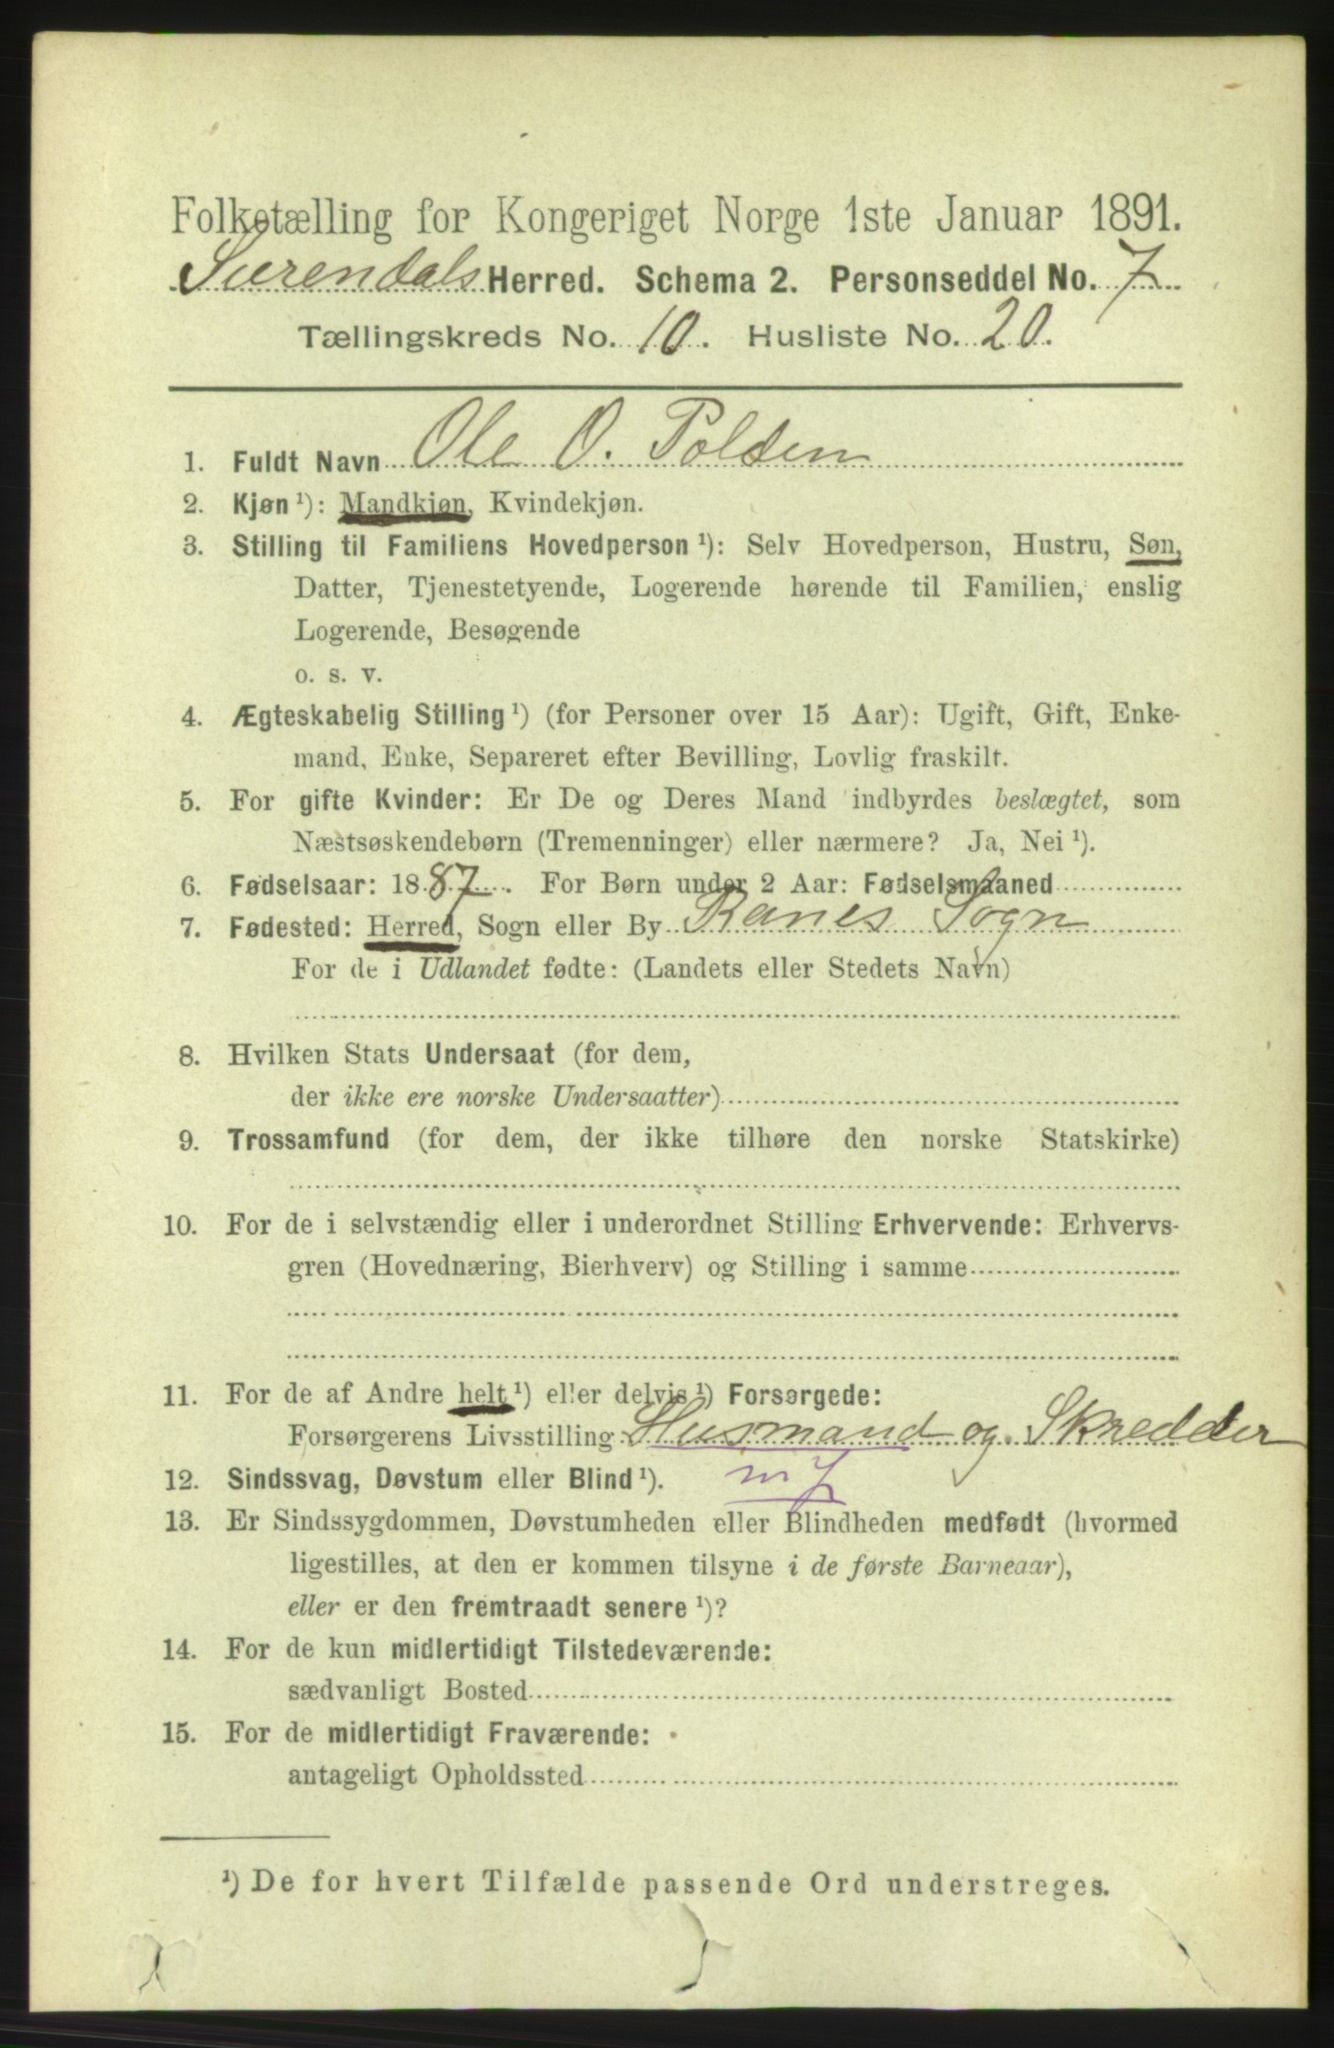 Folketælling for Kongeriget Norge 1ste Januar 1891.
Surendals Herred. Schema 2. Personseddel No. 7
Tællingskreds No. 10. Husliste No. 20.
1. Fuldt Navn Ole O. Polden
2. Kjøn ¹): Mandkjøn, Kvindekjøn.
3. Stilling til Familiens Hovedperson ¹): Selv Hovedperson, Hustru, Søn,
Datter, Tjenestetyende, Logerende hørende til Familien, enslig
Logerende, Besøgende
o. s. v.
4. Ægteskabelig Stilling ¹) (for Personer over 15 Aar): Ugift, Gift, Enke-
mand, Enke, Separeret efter Bevilling, Lovlig fraskilt.
5. For gifte Kvinder: Er De og Deres Mand indbyrdes beslægtet, som
Næstsøskendebørn (Tremenninger) eller nærmere? Ja, Nei ¹).
6. Fødselsaar: 1887. For Børn under 2 Aar: Fødselsmaaned
7. Fødested: Herred, Sogn eller By Ranes Sogn
For de i Udlandet fødte: (Landets eller Stedets Navn)
8. Hvilken Stats Undersaat (for dem,
der ikke ere norske Undersaatter)
9. Trossamfund (for dem, der ikke tilhøre den norske Statskirke)
10. For de i selvstændig eller i underordnet Stilling Erhvervende: Erhvervs-
gren (Hovednæring, Bierhverv) og Stilling i samme
11. For de af Andre helt ¹) eller delvis ¹) Forsørgede:
Forsørgerens Livsstilling Husmand og Skredder
12. Sindssvag, Døvstum eller Blind ¹). m7
13. Er Sindssygdommen, Døvstumheden eller Blindheden medfødt (hvormed
ligestilles, at den er kommen tilsyne i de første Barneaar),
eller er den fremtraadt senere ¹)?
14. For de kun midlertidigt Tilstedeværende:
sædvanligt Bosted
15. For de midlertidigt Fraværende:
antageligt Opholdssted
¹) De for hvert Tilfælde passende Ord understreges.